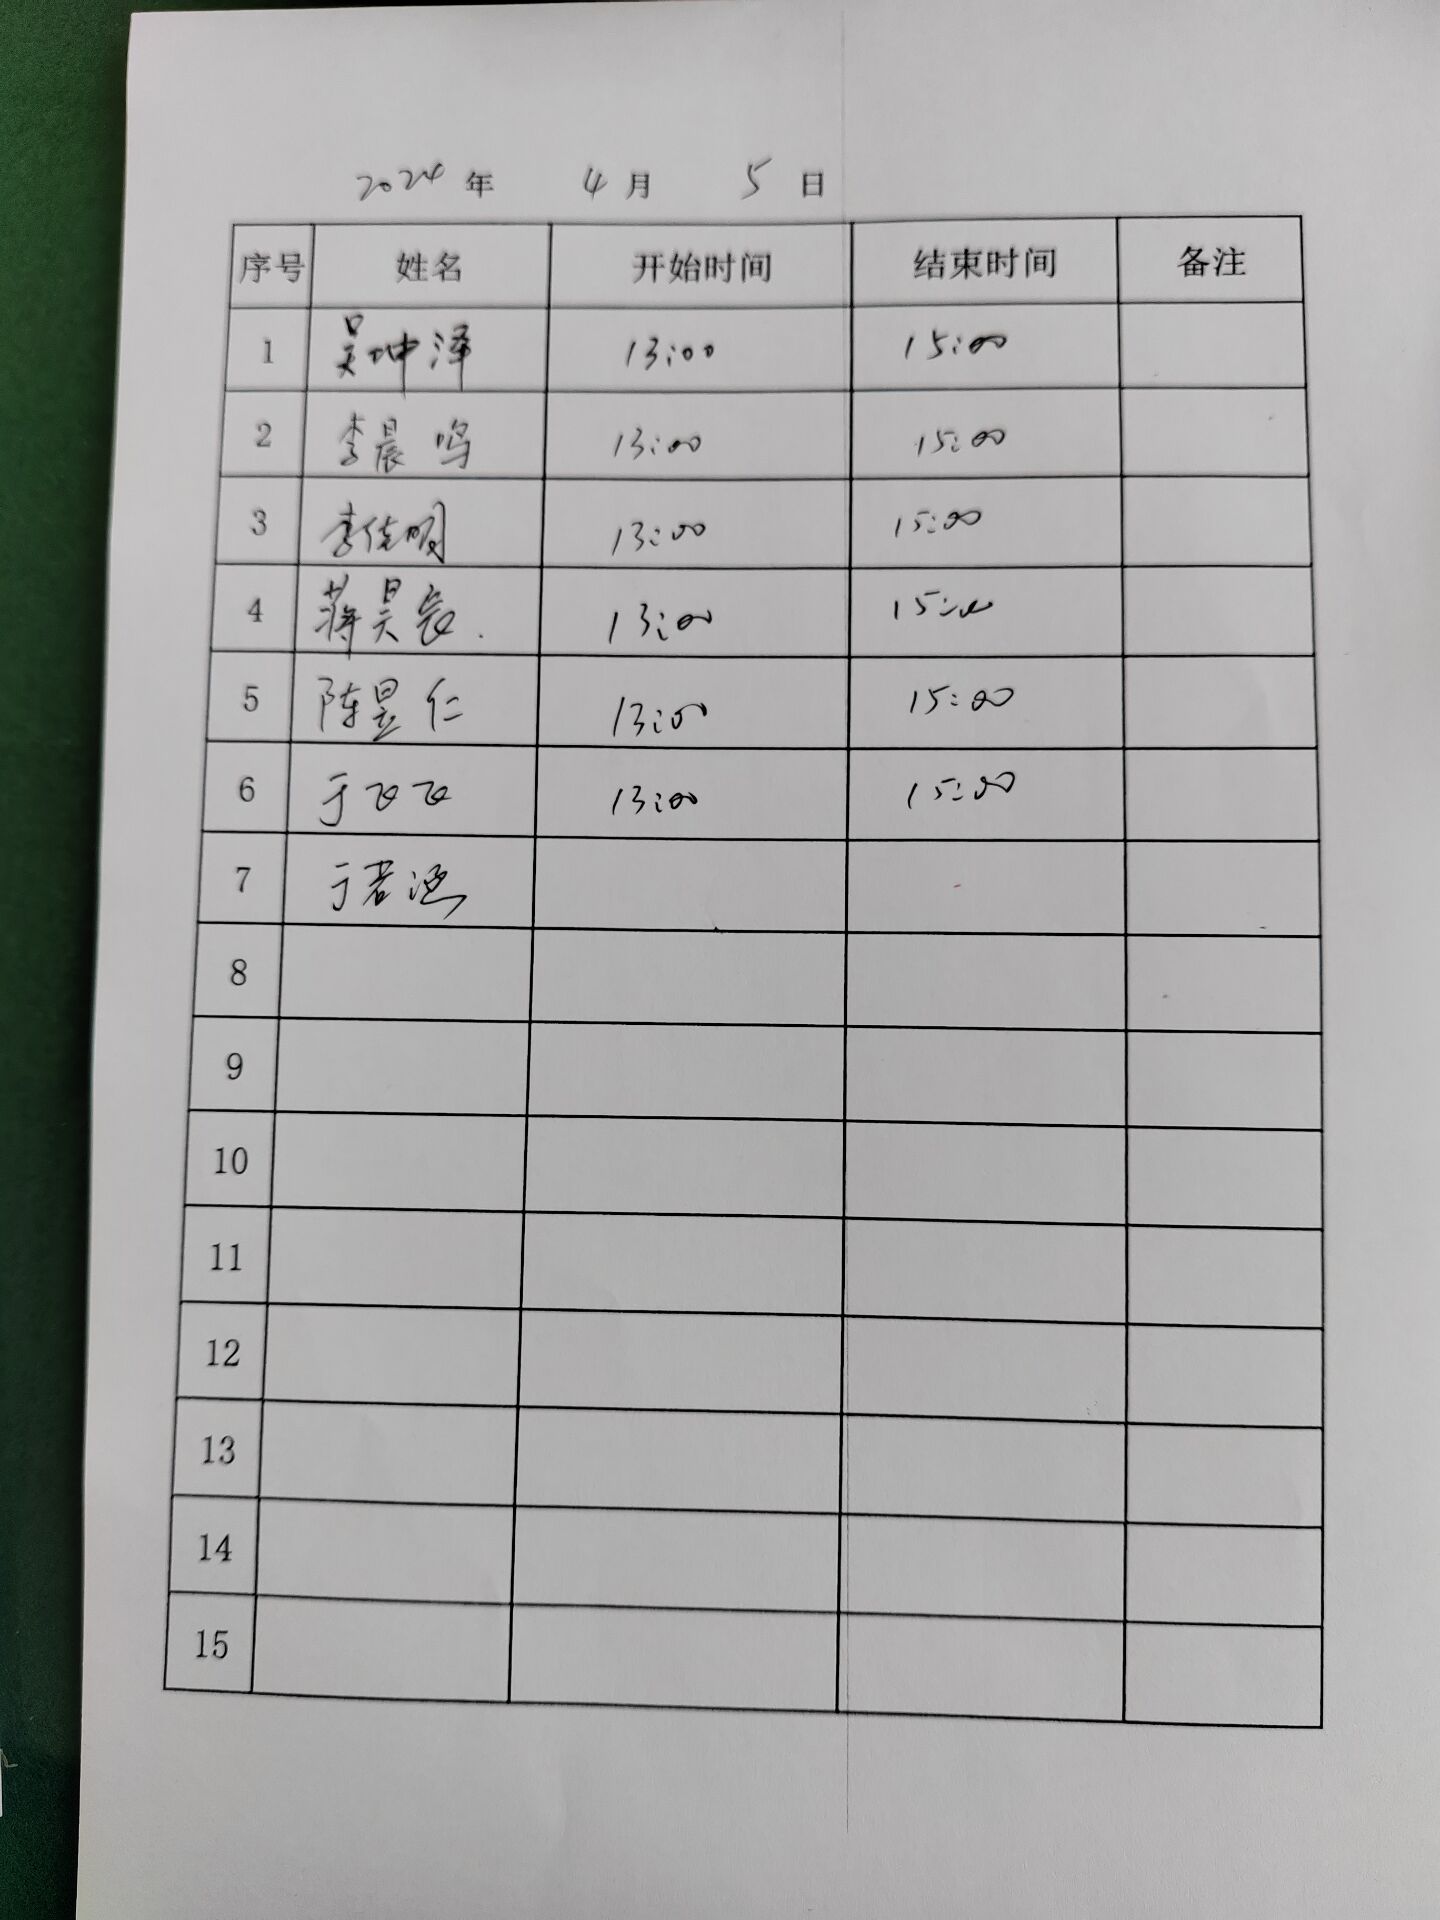 2024 年 4 月 5 日
序号 姓名 开始时间 结束时间 备注
1 吴坤泽 13:00 15:00
2 李晨鸣 13:00 15:00
3 李佳明 13:00 15:00
4 蒋昊辰. 13:00 15:00
5 陈昱仁 13:00 15:00
6 于飞飞 13:00 15:00
7 于若涵
8
9
10
11
12
13
14
15